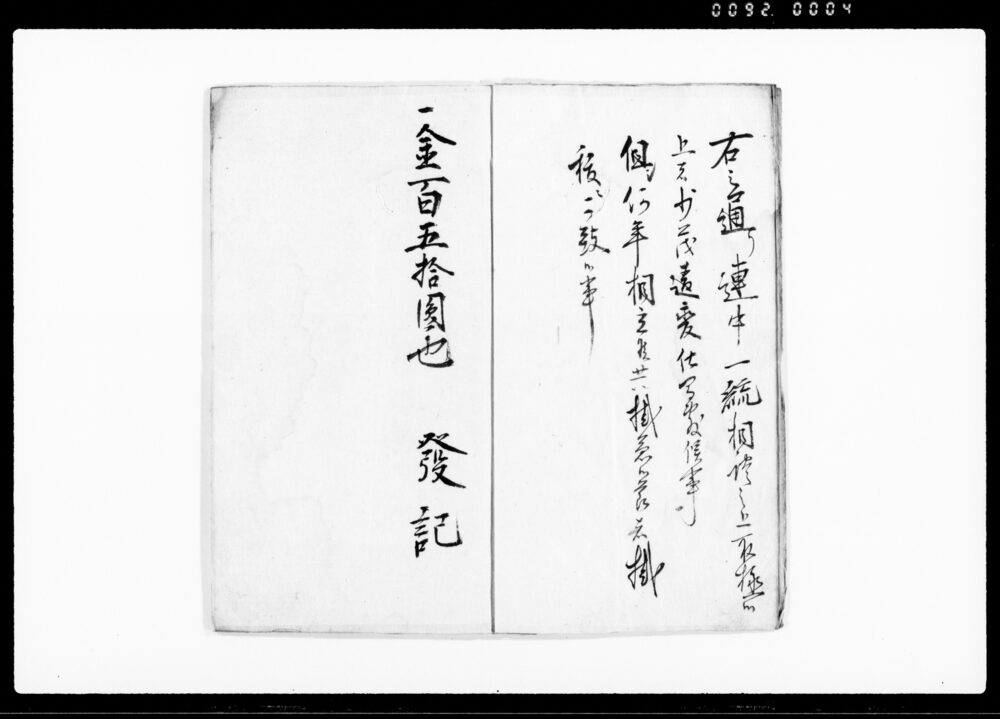 0092 0004
右之通り連中一統相談之上取極候
上者少茂違変仕間敷候事
但何年相立候共掛
稜 可致候事
一金百五拾圓也 發記